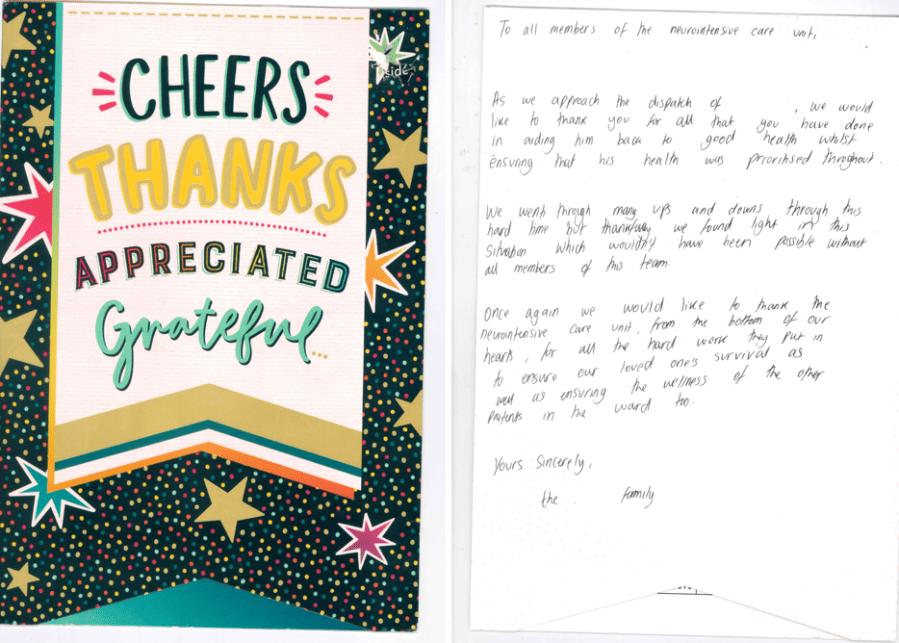 CHEERS
THANKS
APPRECIATED
Grateful...
inside
To all members of the neurointensive care unit,
As we approach the dispatch of , we would
like to thank you for all that you have done
in aiding him back to good health whilst
ensuring that his health was prioritised throughout.
We went through many ups and downs through this
hard time but thankfully we found light in this
situation which wouldn't have been possible without
all members of this team.
Once again we would like to thank the
neurointensive care unit, from the bottom of our
hearts, for all the hard work they put in
to ensure our loved one's survival as
well as ensuring the wellness of the other
patients in the ward too.
Yours Sincerely,
the family